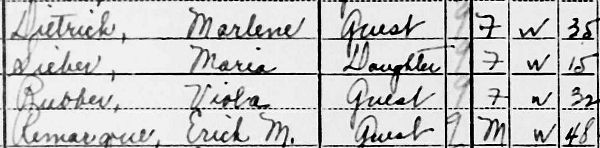 Dietrich, Marlene Guest 9 F W 35
Sieber, Maria Daughter 9 F W 15
Rubber, Viola Guest 9 F W 32
Remarque, Erich M. Guest 9 M W 48